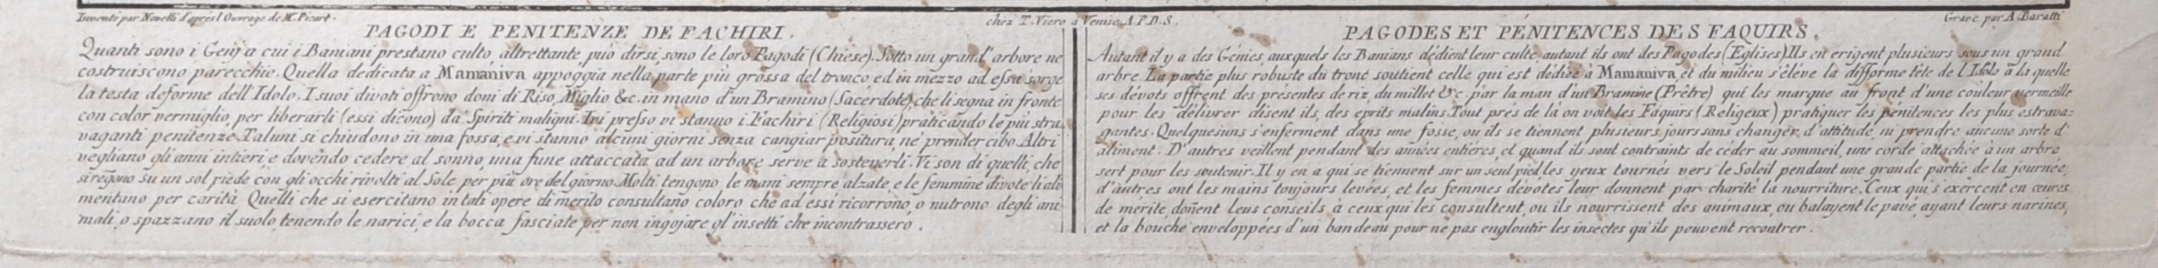 Inventé par Novelli d'après l'Ouvrage de Mr. Picart.
chez T. Viero a Venise A.P.D.S.
Gravé par A. Baratti
PAGODI E PENITENZE DE FACHIRI.
Quanti sono i Genj a cui i Baniani prestano culto, altrettante può dirsi, sono le loro Pagodi (Chiese). Sotto un grand' arbore ne
costruiscono parecchie. Quella dedicata a Mamaniva appoggia nella parte più grossa del tronco, ed in mezzo ad essa sorge
la testa deforme dell'Idolo. I suoi divoti offrono doni di Riso, Miglio &c. in mano d'un Bramino (Sacerdote), che li segna in fronte
con color vermiglio, per liberarli (essi dicono) da Spiriti maligni. Ivi presso vi stanno i Fachiri (Religiosi) praticando le più stra_
vaganti penitenze. Taluni si chiudono in una fossa, e vi stanno alcuni giorni senza cangiar positura, nè prender cibo. Altri
vegliano gli anni intieri, e dovendo cedere al sonno, una fune attaccata ad un arbore serve a sostenerli. Vi son di quelli, che
si regono su un sol piede con gli occhi rivolti al Sole per più ore del giorno. Molti tengono le mani sempre alzate, e le femmine divote li ali
mentano per carità. Quelli che si esercitano in tali opere di merito consultano coloro che ad essi ricorrono, o nutrono degli ani
mali, o spazzano il suolo, tenendo le narici, e la bocca fasciate per non ingojare gl'insetti che incontrassero.
PAGODES ET PÉNITENCES DES FAQUIRS.
Autant il y a des Génies auxquels les Banians dédient leur culte, autant ils ont des Pagodes (Eglises) Ils en erigent plusieurs sous un grand
arbre. La partie plus robuste du tront soutient celle qui est dediée à Mamaniva, et du milieu s'éleve la difforme tête de l'Idole à la quelle
ses dévots offrent des présentes de riz, du millet &c. par la man d'un Bramine (Prêtre) qui les marque au front d'une couleur vermeille
pour les délivrer disent ils, des eprits malins. Tout près de là on voit les Faquirs (Religeux) pratiquer les pénitences les plus estrava=
gantes. Quelquesuns s'enferment dans une fosse, ou ils se tiennent plusieurs jours sans changer, d'attitude, ni prendre aucune sorte d'
aliment. D'autres veillent pendant des années entières, et quand ils sont contraints de céder au sommeil, une corde attachée à un arbre
sert pour les soutenir. Il y en a qui se tiennent sur un seul pied les yeux tournés vers le Soleil pendant une grande partie de la journée;
d'autres ont les mains toujours levées, et les femmes dévotes leur donnent par charité la nourriture. Ceux qui s'exercent en œuvres
de mérite, doñent leus conseils à ceux qui les consultent, ou ils nourrissent des animaux, ou balayent le pavé, ayant leurs narines,
et la bouche enveloppées d'un bandeau pour ne pas engloutir les insectes qu'ils peuvent recontrer.